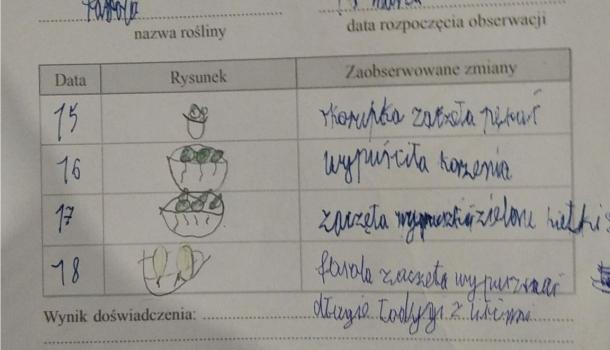 Fasola
nazwa rośliny
data rozpoczęcia obserwacji
Data Rysunek Zaobserwowane zmiany
15 skorupka zaczęła pękać
16 wypuściła korzenia
17 zaczęła zielone kiełki
18 fasola zaczęła wypuszczać
Wynik doświadczenia: długie łodygi z liśćmi